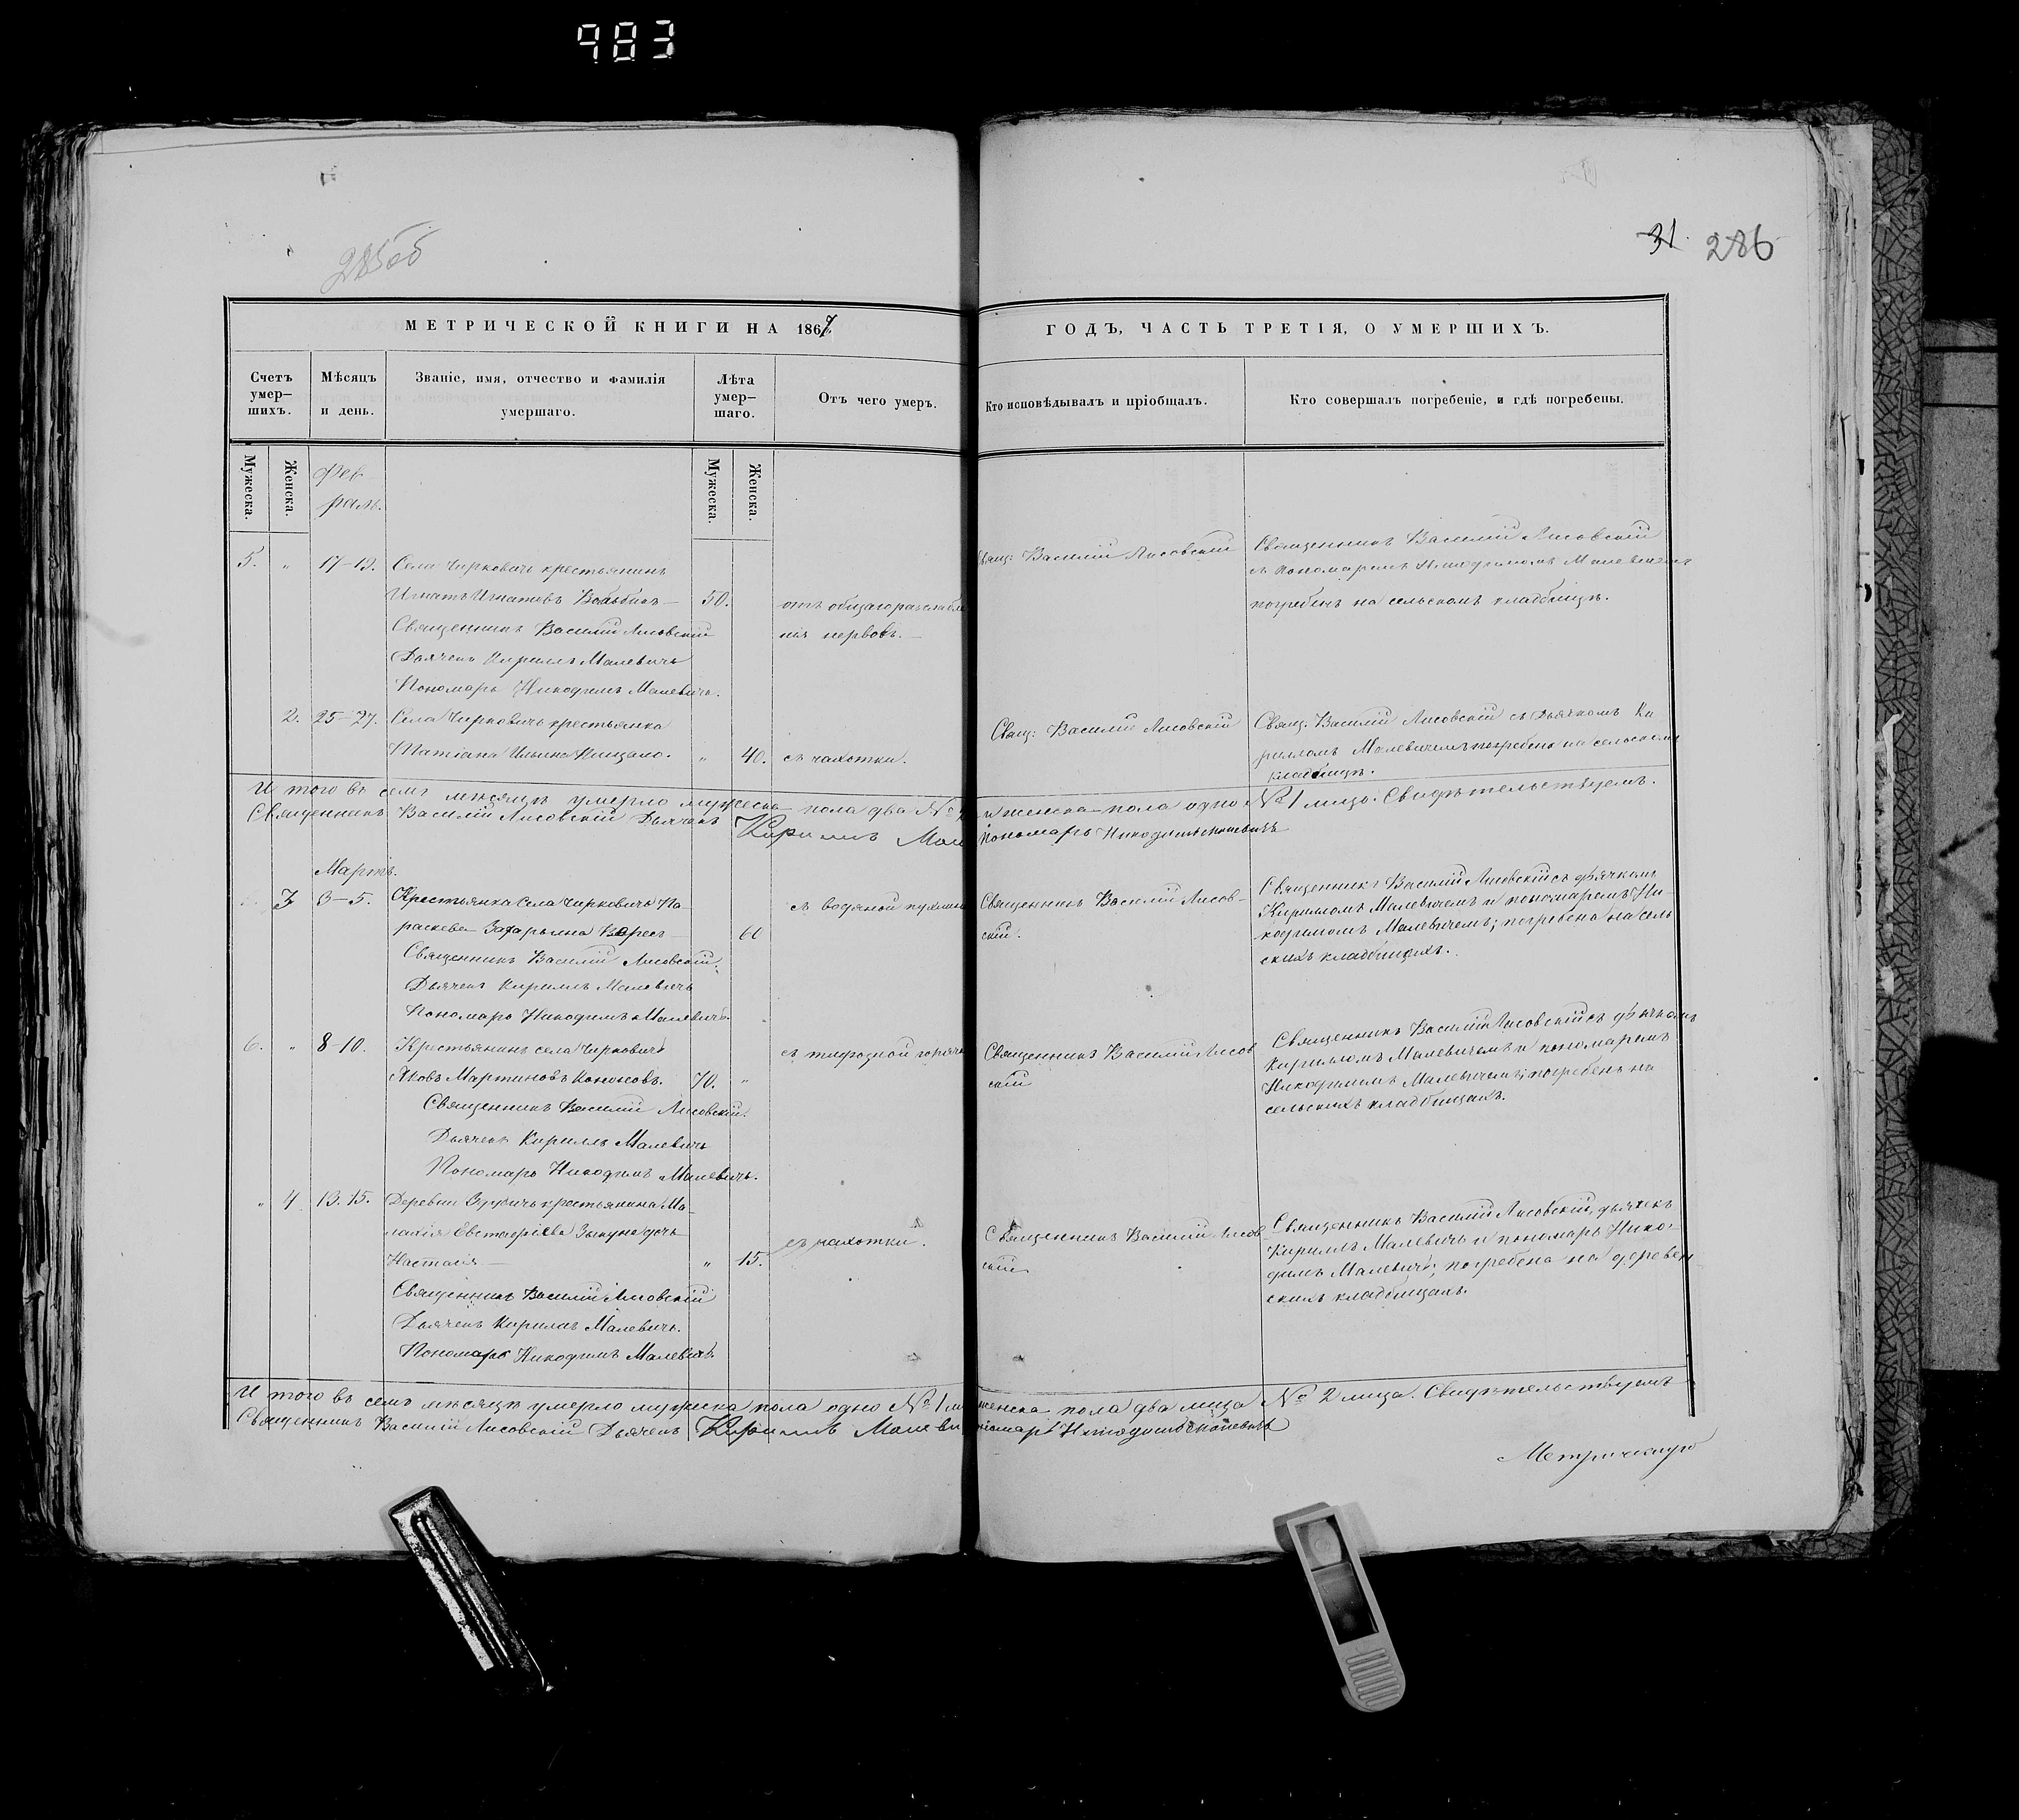 983
285об
31. 286
МЕТРИЧЕСКОЙ КНИГИ НА 1867
ГОДЪ, ЧАСТЬ ТРЕТІЯ, О УМЕРШИХЪ.
Счетъ умер-шихъ.
Мѣсяцъ и день.
Званіе, имя, отчество и фамилія умершаго.
Лѣта умер-шаго.
Отъ чего умеръ.
Кто исповѣдывалъ и пріобщалъ.
Кто совершалъ погребеніе, и гдѣ погребены.
Мужеска.
Женска.
Фев
раль.
Мужеска.
Женска.
5. " 17-19. Села Чирковичь крестьянинъ
Игнатъ Игнатовъ — 50.
Священникъ Василій Лисовскій
Дьячекъ Кирилъ Малевичь
Пономарь Никодимъ Малевичь.
отъ общаго разслабле
нія нервовъ. —
Свящ: Василій Лисовскій
Священникъ Василій Лисовскій
съ пономаремъ Никодимомъ Малевичемъ
погребенъ на сельскомъ кладбищѣ.
2. 25-27. Села Чирковичь крестьянка
Татіана Ильина " 40. съ чахотки.
Свящ: Василій Лисовскій
Свящ. Василій Лисовскій съ Дьячкомъ Ки
рилломъ Малевичемъ погребена на сельскомъ
кладбищѣ.
И того въ семъ мѣсяцѣ умерло мужеска пола два № и женска пола одно № 1 лицо. Свидѣтельствуемъ.
Священникъ Василій Лисовскій Дьячекъ Кириллъ Мале Пономарь Никодимъ Малевичь
Мартъ.
3 3-5. Крестьянка села Чирковичь Па
раскева Захарьина 60
Священникъ Василій Лисовскій.
Дьячекъ Кириллъ Малевичь
Пономарь Никодимъ Малевичь.
съ водяной пухлины
Священникъ Василій Лисов-
скій.
Священникъ Василій Лисовскій съ дьячкомъ
Кирилломъ Малевичемъ и пономаремъ Ни-
кодимомъ Малевичемъ; погребена на сель
скихъ кладбищахъ.
6. " 8-10. Крестьянинъ села Чирковичь
Яковъ Мартиновъ Кононовъ. 70. "
Священникъ Василій Лисовскій.
Дьячекъ Кириллъ Малевичь
Пономарь Никодимъ Малевичь.
съ тифозной горячк
Священникъ Василій Лисов
скій
Священникъ Василій Лисовскій съ дьячкомъ
Кирилломъ Малевичемъ и пономаремъ
Никодимомъ Малевичемъ; погребенъ на
сельскихъ кладбищахъ.
" 4 13. 15. Деревни крестьянина Ма
лахія Евстафіева дочь
Настасія — " 15.
Священникъ Василій Лисовскій
Дьячекъ Кириллъ Малевичь.
Пономарь Никодимъ Малевичь.
съ чахотки.
Священникъ Василій Лисов
скій
Священникъ Василій Лисовскій, дьячекъ
Кириллъ Малевичь и пономарь Нико-
димъ Малевичь; погребена на деревен
скихъ кладбищахъ.
И того въ семъ мѣсяцѣ умерло мужеска пола одно № 1 женска пола два лица № 2 лица. Свидѣтельствуемъ
Священникъ Василій Лисовскій Дьячекъ Кириллъ Малеви Никодимъ Малевичь
Метрическую